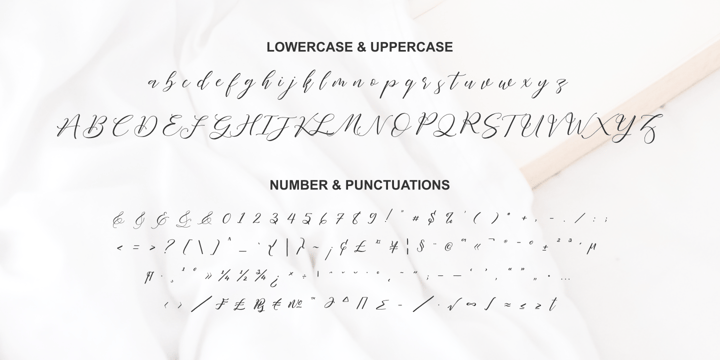 LOWERCASE & UPPERCASE
a b c d e f g h i j k l m n o p q r s t u v w x y z
A B C D E F G H I J K L M N O P Q R S T U V W X Y Z
NUMBER & PUNCTUATIONS
& & & & & 0 1 2 3 4 5 6 7 8 9 ! " # $ % ' ( ) * + , - . / : ;
< = > ? [ \ ] ^ _ ` { | } ~ ¡ ¢ £ ¤ ¥ ¦ § ¨ © ª « ¬ ® ¯ ° ± ² ³ ´ µ
¶ · ¸ ¹ º » ¼ ½ ¾ ¿ × ÷
/ ₣ £ € № ™ ∂ ∆ ∏ ∑ − / · √ ∞ ∫ ≈ ≤ ≥